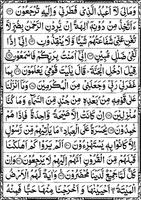 وَمَالِيَ لَآ أَعْبُدُ الَّذِي فَطَرَنِي وَإِلَيْهِ تُرْجَعُونَ
ءَأَتَّخِذُ مِن دُونِهِ ءَالِهَةً إِن يُرِدْنِ الرَّحْمَٰنُ بِضُرٍّ لَّا
تُغْنِ عَنِّي شَفَاعَتُهُمْ شَيْئًا وَلَا يُنقِذُونِ إِنِّي إِذًا
لَّفِي ضَلَٰلٍ مُّبِينٍ إِنِّي ءَامَنتُ بِرَبِّكُمْ فَاسْمَعُونِ
قِيلَ ادْخُلِ الْجَنَّةَ قَالَ يَٰلَيْتَ قَوْمِي يَعْلَمُونَ بِمَا
غَفَرَ لِي رَبِّي وَجَعَلَنِي مِنَ الْمُكْرَمِينَ وَمَآ أَنزَلْنَا
عَلَىٰ قَوْمِهِ مِن بَعْدِهِ مِن جُندٍ مِّنَ السَّمَآءِ وَمَا كُنَّا
مُنزِلِينَ إِن كَانَتْ إِلَّا صَيْحَةً وَٰحِدَةً فَإِذَا هُمْ
خَٰمِدُونَ يَٰحَسْرَةً عَلَى الْعِبَادِ مَا يَأْتِيهِم مِّن رَّسُولٍ
إِلَّا كَانُوا بِهِ يَسْتَهْزِءُونَ أَلَمْ يَرَوْا كَمْ أَهْلَكْنَا
قَبْلَهُم مِّنَ الْقُرُونِ أَنَّهُمْ إِلَيْهِمْ لَا يَرْجِعُونَ
وَإِن كُلٌّ لَّمَّا جَمِيعٌ لَّدَيْنَا مُحْضَرُونَ وَءَايَةٌ لَّهُمُ الْأَرْضُ
الْمَيْتَةُ أَحْيَيْنَٰهَا وَأَخْرَجْنَا مِنْهَا حَبًّا فَمِنْهُ